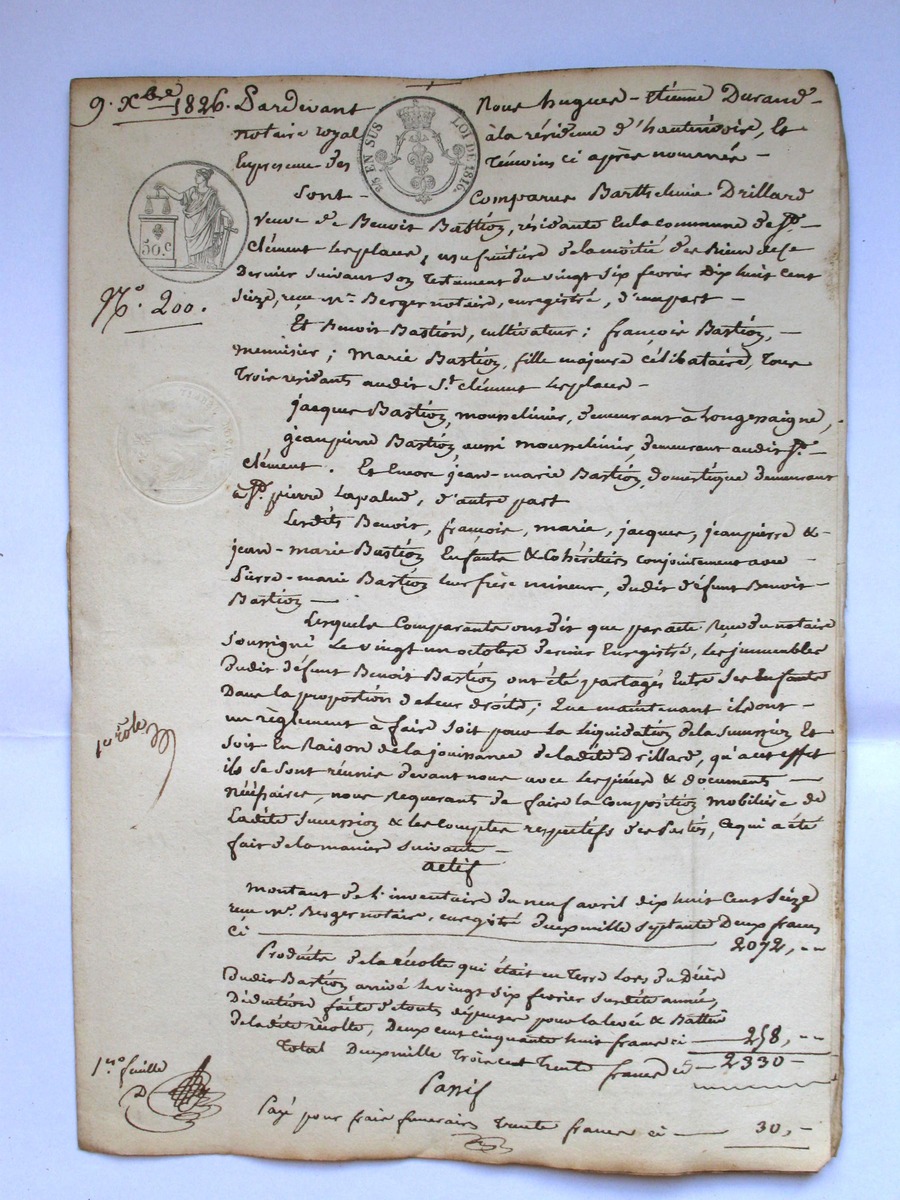 9. Xbre 1826. Pardevant Nous hugues-étienne Durand-
notaire royal à la résidence d'hauterivoire, Et
En présence des témoins ci après nommés -
25 EN SUS LOI DE 1816.
Sont - Comparus Barthelmie Drillard
veuve de Benoit Bastion, résidante en la commune de St.-
Clément les places, usufruitière de la moitié des Biens de ce
dernier suivant son testament du vingt six fevrier dix huit cent
Seize, reçu Me. Berger notaire, enregistré, d'une part -
50.c
No. 200.
Et Benoit Bastion, cultivateur; françois Bastion,-
menuisier; Marie Bastion, fille majeure célibataire, tous
trois résidants audit St. clément les places -
jacques Bastion, mousselinier, demeurant à Longessaigne,
jean pierre Bastion, aussi mousselinier, demeurant audit St.-
clément. Et Encore jean-marie Bastion, domestique demeurant
à St. pierre Lapalud, d'autre part
Lesdits Benoit, françois, marie, jacques, jeanpierre &-
jean-marie Bastion Enfants & Cohéritiers conjointement avec
Pierre-marie Bastion leur frère mineur, dudit défunt Benoit-
Bastion -
Lesquels Comparants ont dit que par acte reçu du notaire
Soussigné le vingt un octobre dernier Enregistré, les immeubles
dudit défunt Benoit Bastion ont été partagés Entre ses Enfants
Dans la proportion de leurs droits; Que maintenant ils ont -
un règlement à faire soit pour la liquidation de la succession Et
1er. rôle
soit En Raison de la jouissance de ladite Drillard, qu'à cet effet
ils se sont réunis devant nous avec les pièces & documents -
nécéssaires, nous requerants de faire la composition mobilière de
Ladite succession & les comptes respectifs des parties, Ce qui a été
fait de la manière suivante -
actif
montant de l'inventaire du neuf avril dix huit Cent Seize
reçu Me. Berger notaire, enregistré deux mille septante Deux francs
ci 2072,--
Produits de la récolte qui était en terre lors du Décès
dudit Bastion arrivé le vingt six fevrier susdite année,
Déduction faite de touts dépenses pour la levée & Batterie
de ladite récolte, Deux cent cinquante huit francs ci - 258,--
Total Deux mille trois cent trente francs ci - 2330-
1re. feuille
D
Passif
Payé pour frais funeraires trente francs ci - 30,-